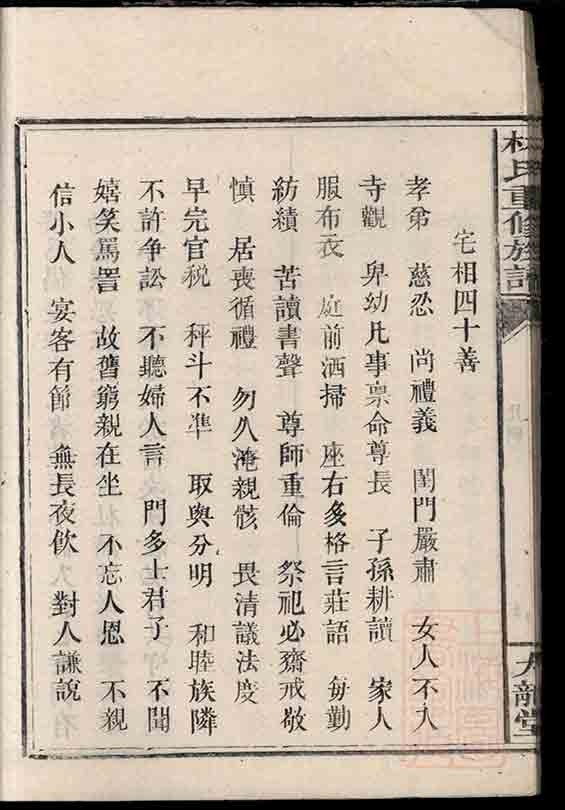 林氏重修族譜
大龍堂
宅相四十善
孝弟 慈忍 尚禮義 閨門嚴肅 女人不入
寺觀 卑幼凡事禀命尊長 子孫耕讀 家人
服布衣 庭前洒掃 座右多格言莊語 每勤
紡績 苦讀書聲 尊師重倫 祭祀必齋戒敬
慎 居喪循禮 勿久淹親骸 畏清議法度
早完官稅 秤斗不準 取與分明 和睦族隣
不許争訟 不聽婦人言 門多士君子 不聞
嬉笑罵詈 故舊窮親在坐 不忘人恩 不親
信小人 宴客有節 無長夜飲 對人謙說